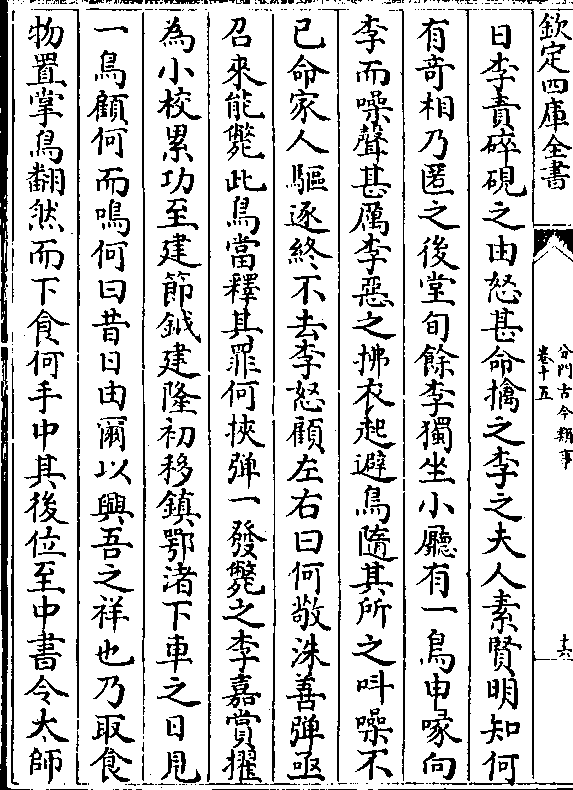 欽定四庫全書
分門古今類事
卷十五
十六
日李責碎硯之由怒甚命擒之李之夫人素賢明知何
有奇相乃匿之後堂旬餘李獨坐小廳有一鳥申喙向
李而噪聲甚厲李惡之拂衣起避鳥隨其所之呌噪不
已命家人驅逐終不去李怒顧左右曰何敬洙善彈亟
召來能斃此鳥當釋其罪何挾彈一發斃之李嘉賞擢
為小校累功至建節鉞建隆初移鎮鄂渚下車之日見
一鳥顧何而鳴何曰昔日由爾以興吾之祥也乃取食
物置掌鳥翻然而下食何手中其後位至中書令太師